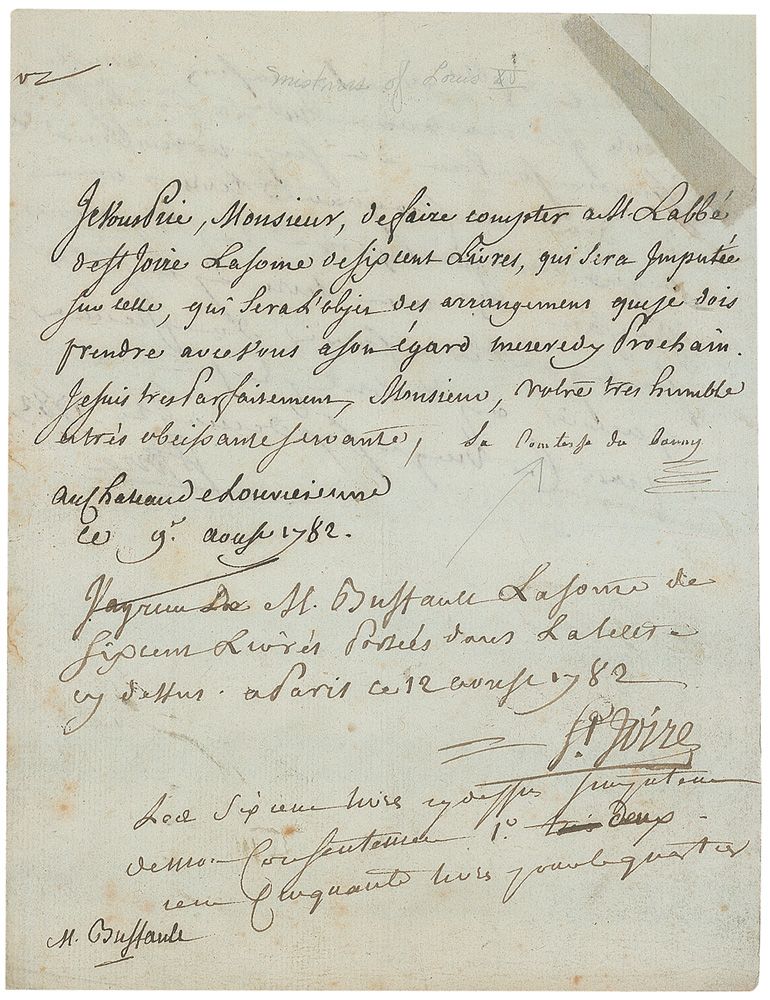 mistress of Louis XV
Je vous Prie, Monsieur, de faire compter a M. Labbé
de St Joire La some de six cent Livres, qui sera Imputée
sur celle, qui sera L'objet des arrangement que je dois
prendre avec vous a son égard mercredy Prochain.
Je suis tres Parfaitement, Monsieur, votre tres humble
et trés obeissante servante, La Comtesse du Barry
au Chateau de Louvecienne
ce 9r. aoust 1782.
J'ay recu De M. Buffault La some de
six cent Livrés Portées dans La lettre
cy dessus. a Paris ce 12 aoust 1782
St. Joire
Les six cent livres cy dessus
de mon Consentement 1o trois deux
cent Cinquante livres pour le quartier
M. Buffault